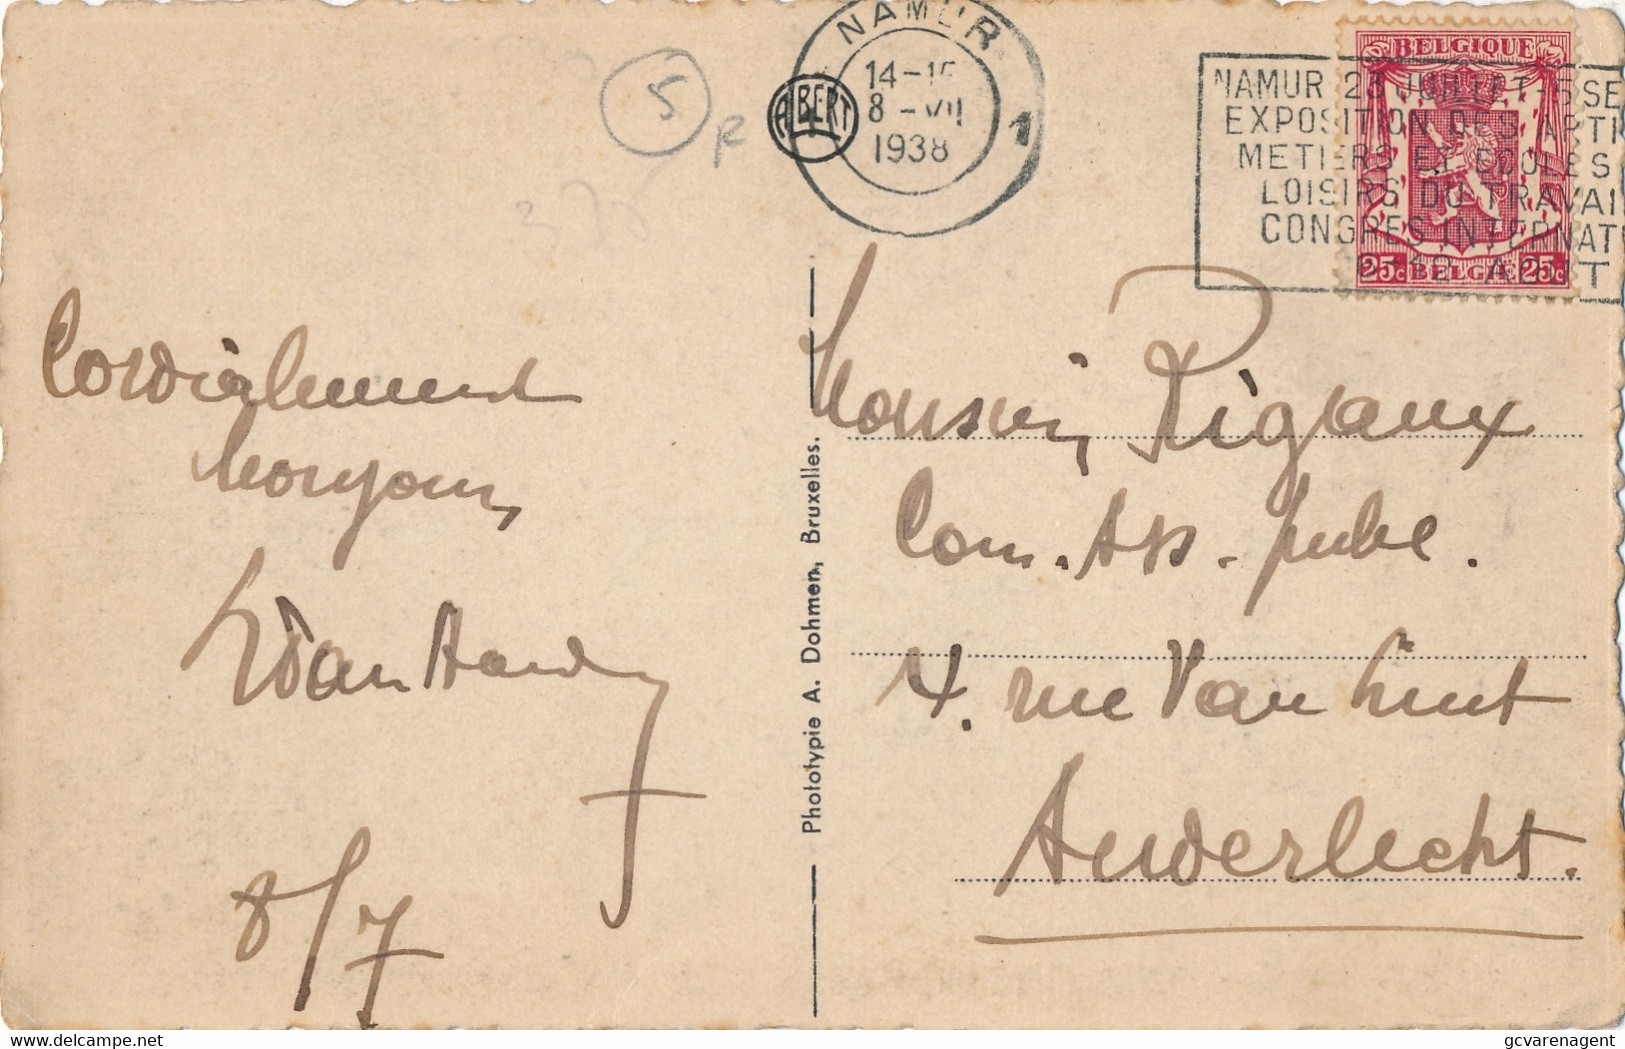 NAMUR
14-15
8-VII
1938
1
ALBERT
NAMUR 23 JUILLET-5 SE
EXPOSITION DES ARTI
METIERS ET ECOLES
LOISIRS DU TRAVAI
CONGRES INTERNAT
AOUT
BELGIQUE
25c BELGIE 25c
5
R
Cordialement
8/7
Phototypie A. Dohmen, Bruxelles.
Monsieur Rigaux
Com. Ass. publ.
4. rue Van Lint
Anderlecht.
gcvarenagent